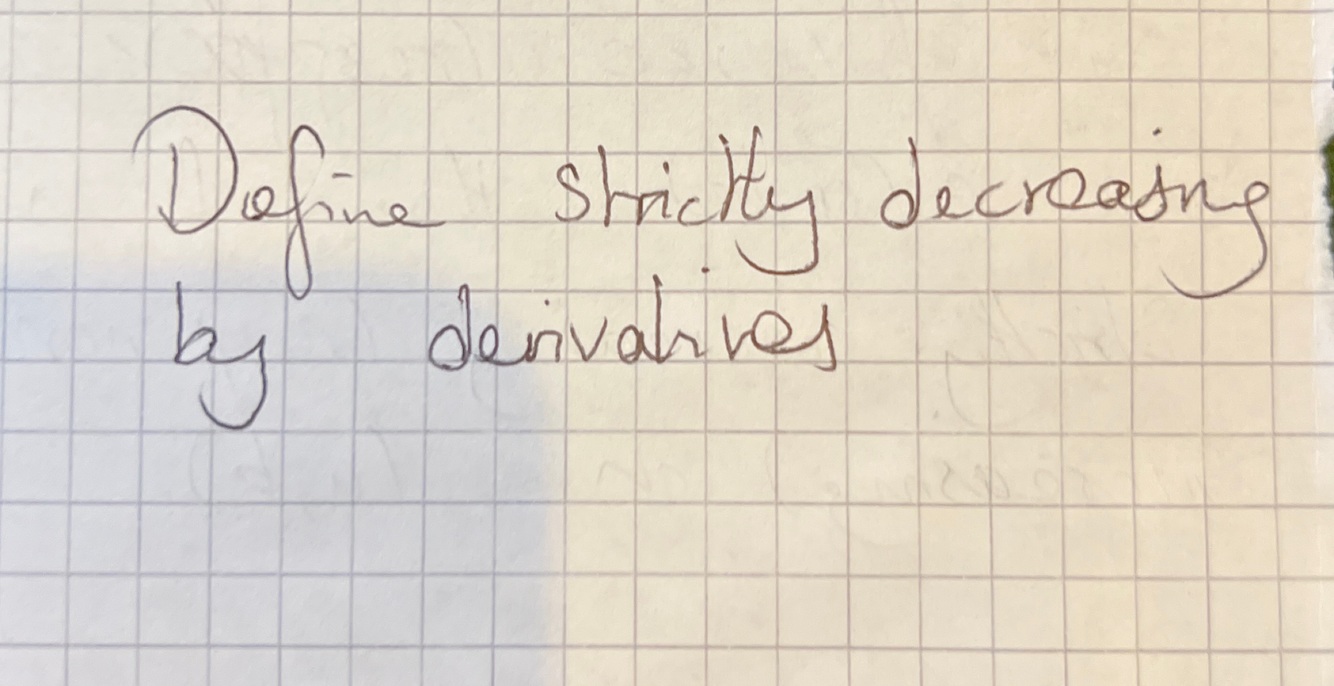 Define strictly decreasing
by derivatives